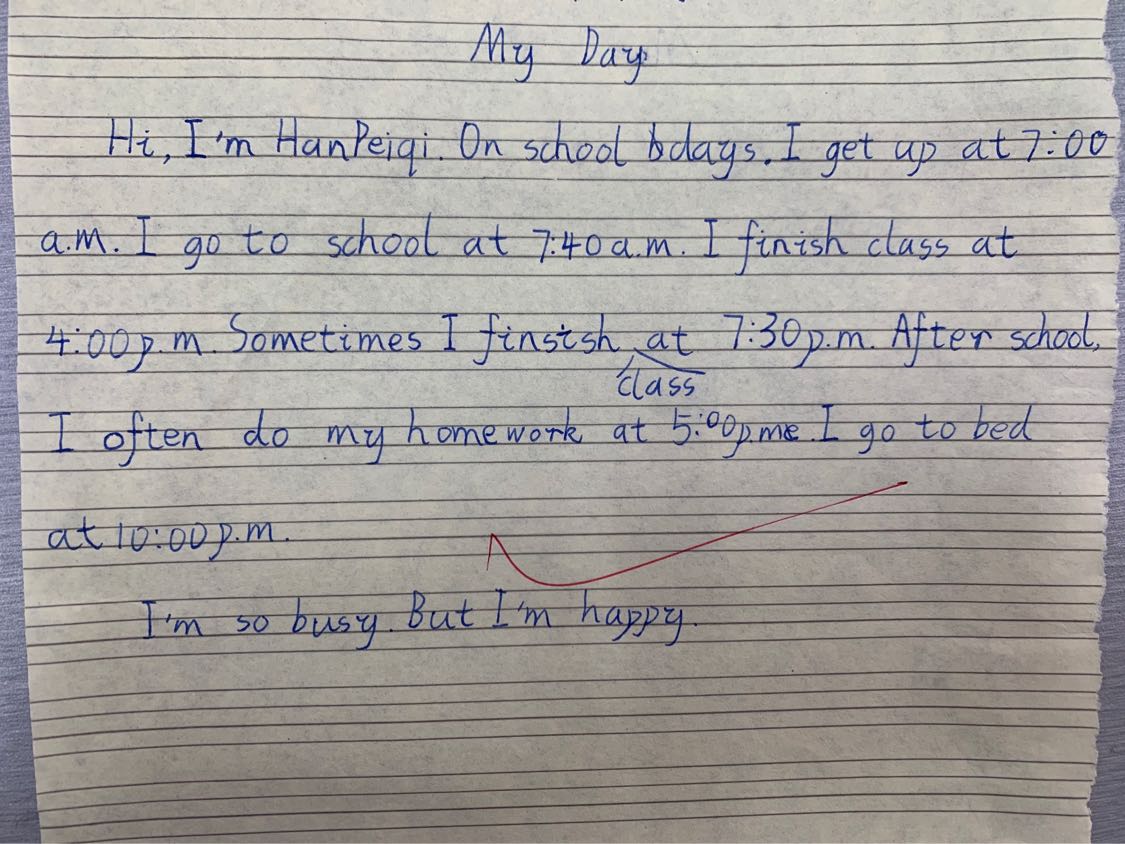 My Day
Hi, I'm HanPeiqi. On school bdays. I get up at 7:00
a.m. I go to school at 7:40 a.m. I finish class at
4:00p.m. Sometimes I finsish at 7:30p.m. After school,
class
I often do my homework at 5:00p.me. I go to bed
at 10:00p.m.
I'm so busy. But I'm happy.